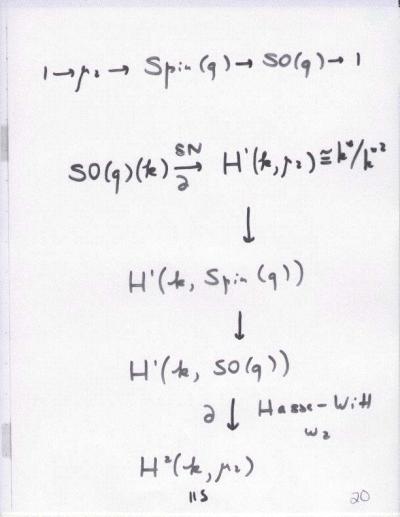 1→μ₂→ Spin(q)→SO(q)→1
SO(q)(k) SN→∂ H¹(k,μ₂)≅k*/k*²
↓
H¹(k, Spin(q))
↓
H¹(k, SO(q))
∂ ↓ Hasse-Witt
w₂
H²(k,μ₂)
"S
20